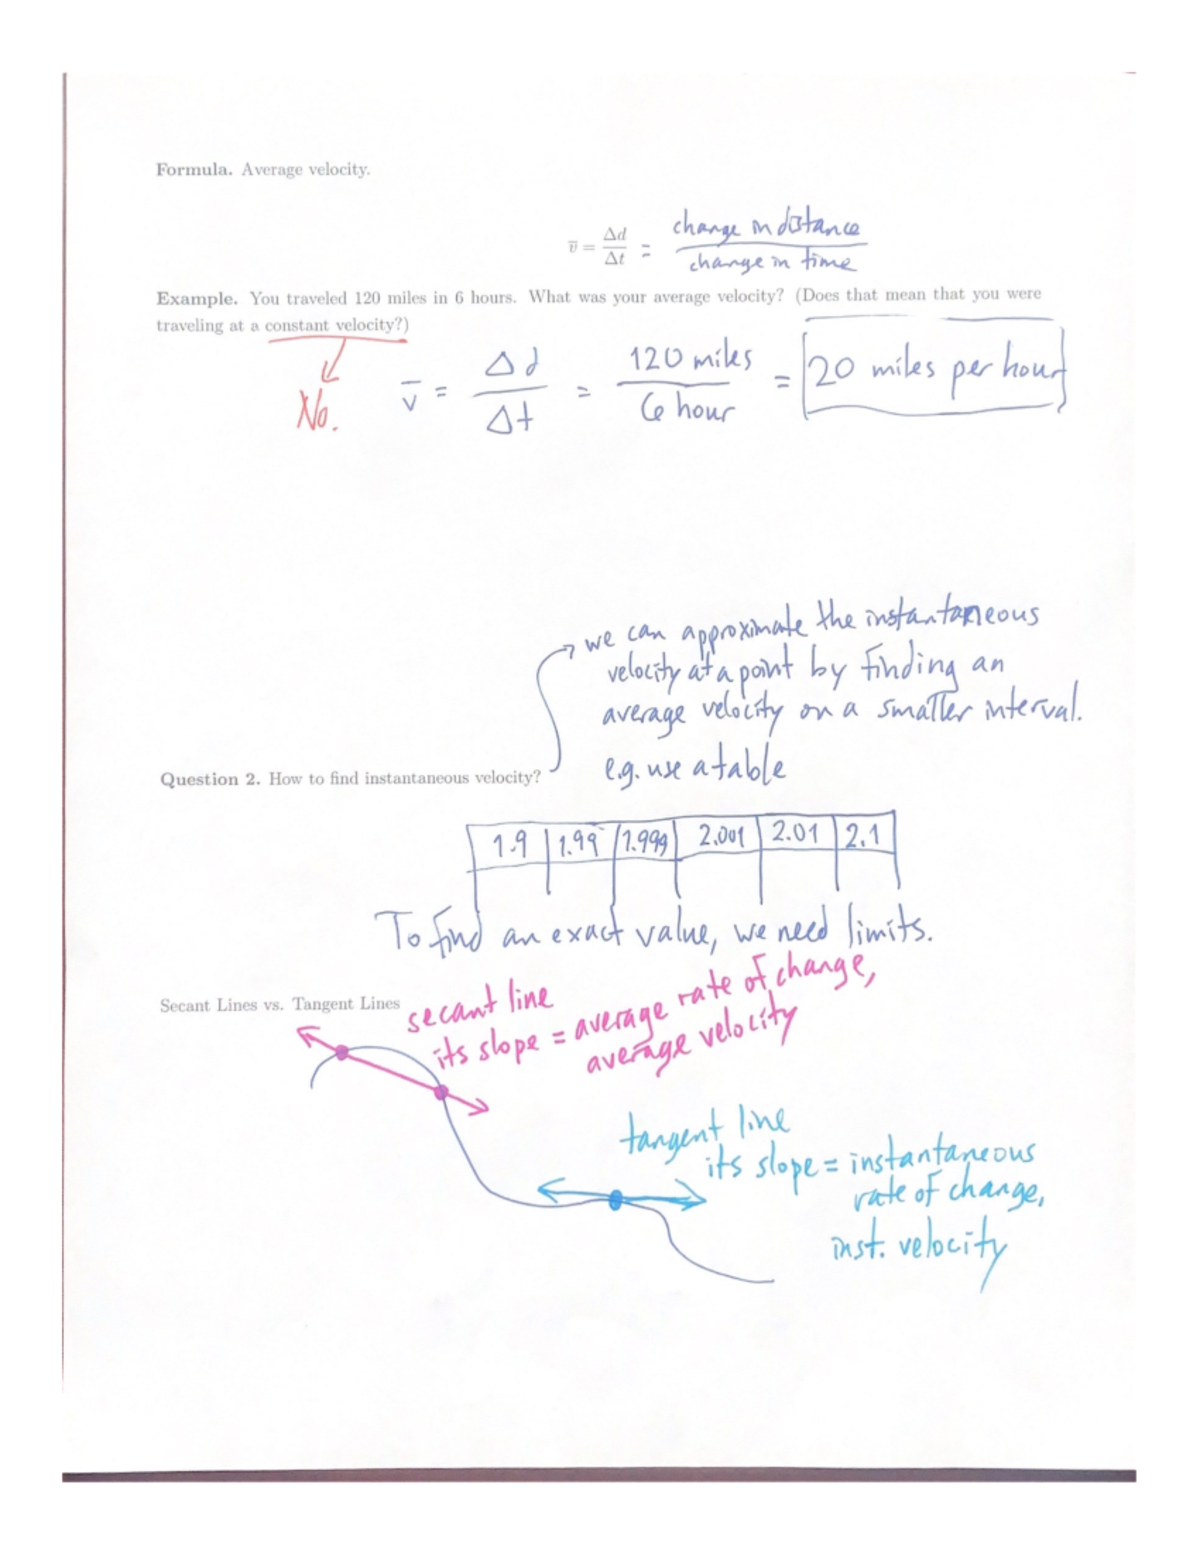 Formula. Average velocity.
v̅ = Δd/Δt = change in distance / change in time
Example. You traveled 120 miles in 6 hours. What was your average velocity? (Does that mean that you were
traveling at a constant velocity?)
No.
v̅ = Δd/Δt = 120 miles / 6 hour = 20 miles per hour
we can approximate the instantaneous
velocity at a point by finding an
average velocity on a smaller interval.
e.g. use a table
Question 2. How to find instantaneous velocity?
1.9 1.99 1.999 2.001 2.01 2.1
To find an exact value, we need limits.
Secant Lines vs. Tangent Lines
secant line
its slope = average rate of change,
average velocity
tangent line
its slope = instantaneous
rate of change,
inst. velocity